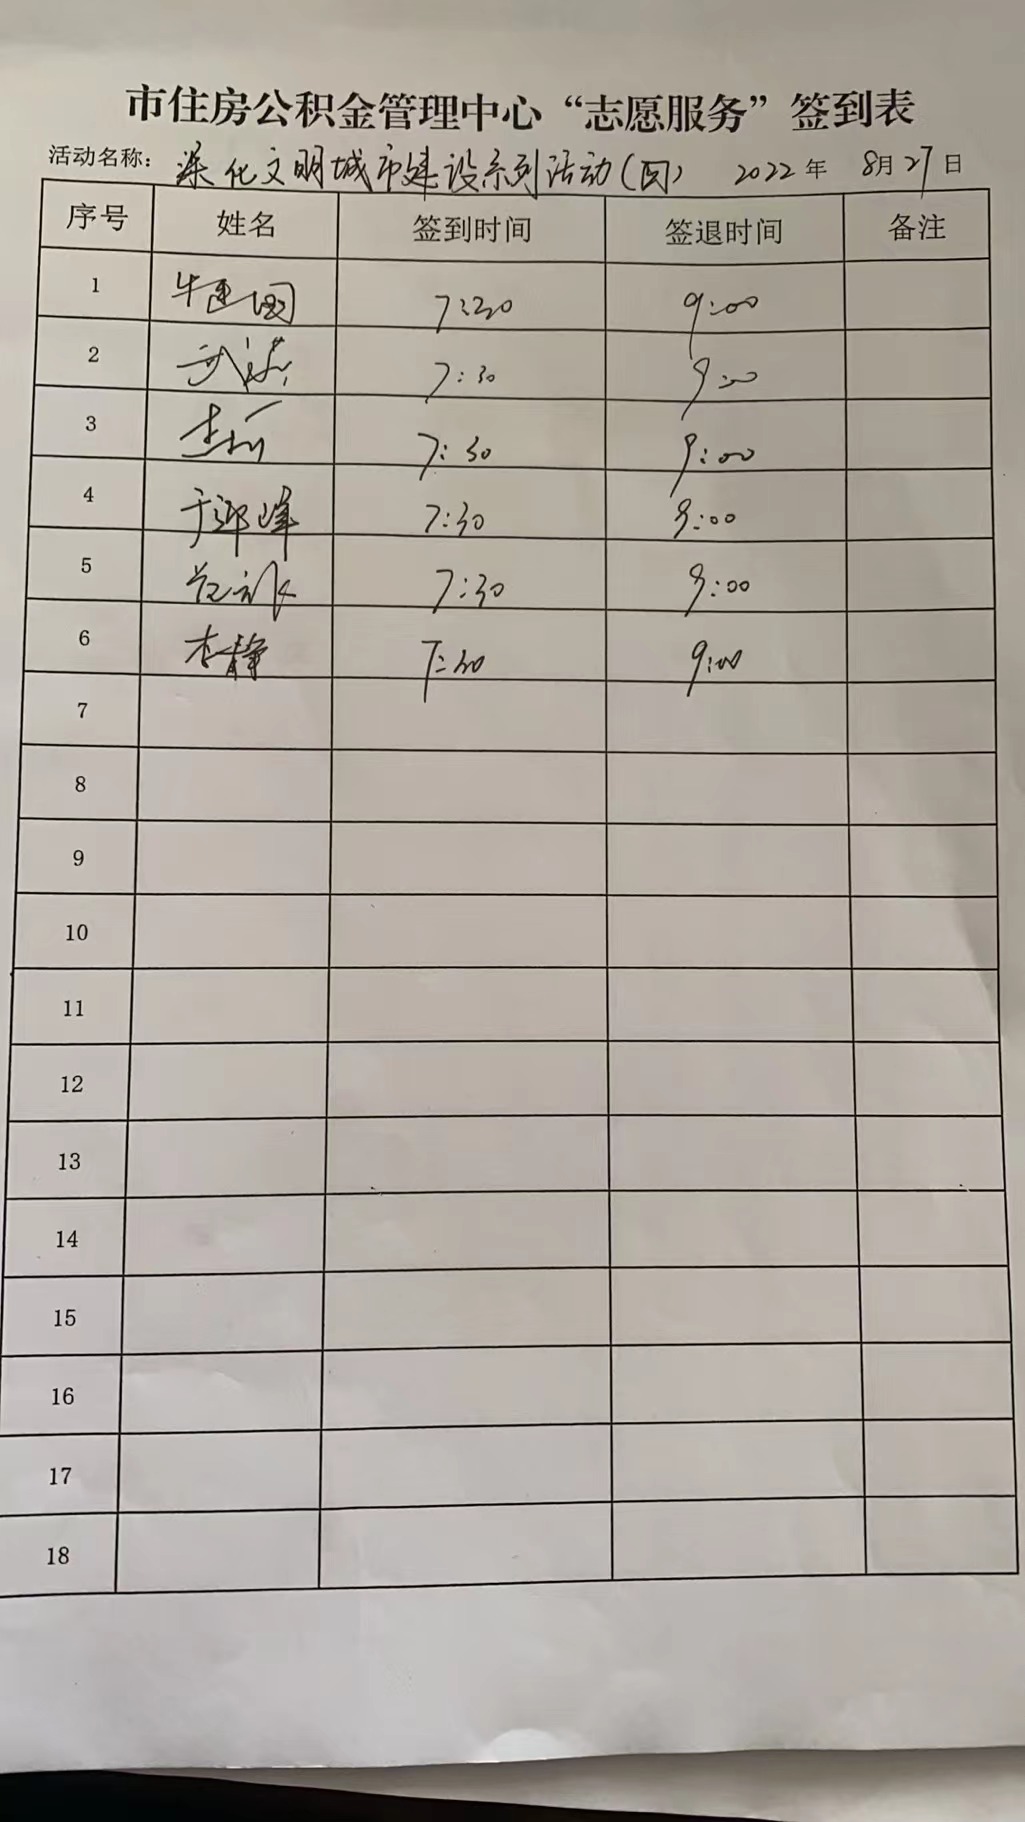 市住房公积金管理中心“志愿服务”签到表
活动名称： 深化文明城市建设系列活动(四) 2022年 8月27日
序号 姓名 签到时间 签退时间 备注
1 牛建国 7:30 9:00
2 武 7:30 9:00
3 7:30 9:00
4 于 峰 7:30 9:00
5 7:30 9:00
6 李静 7:30 9:00
7
8
9
10
11
12
13
14
15
16
17
18